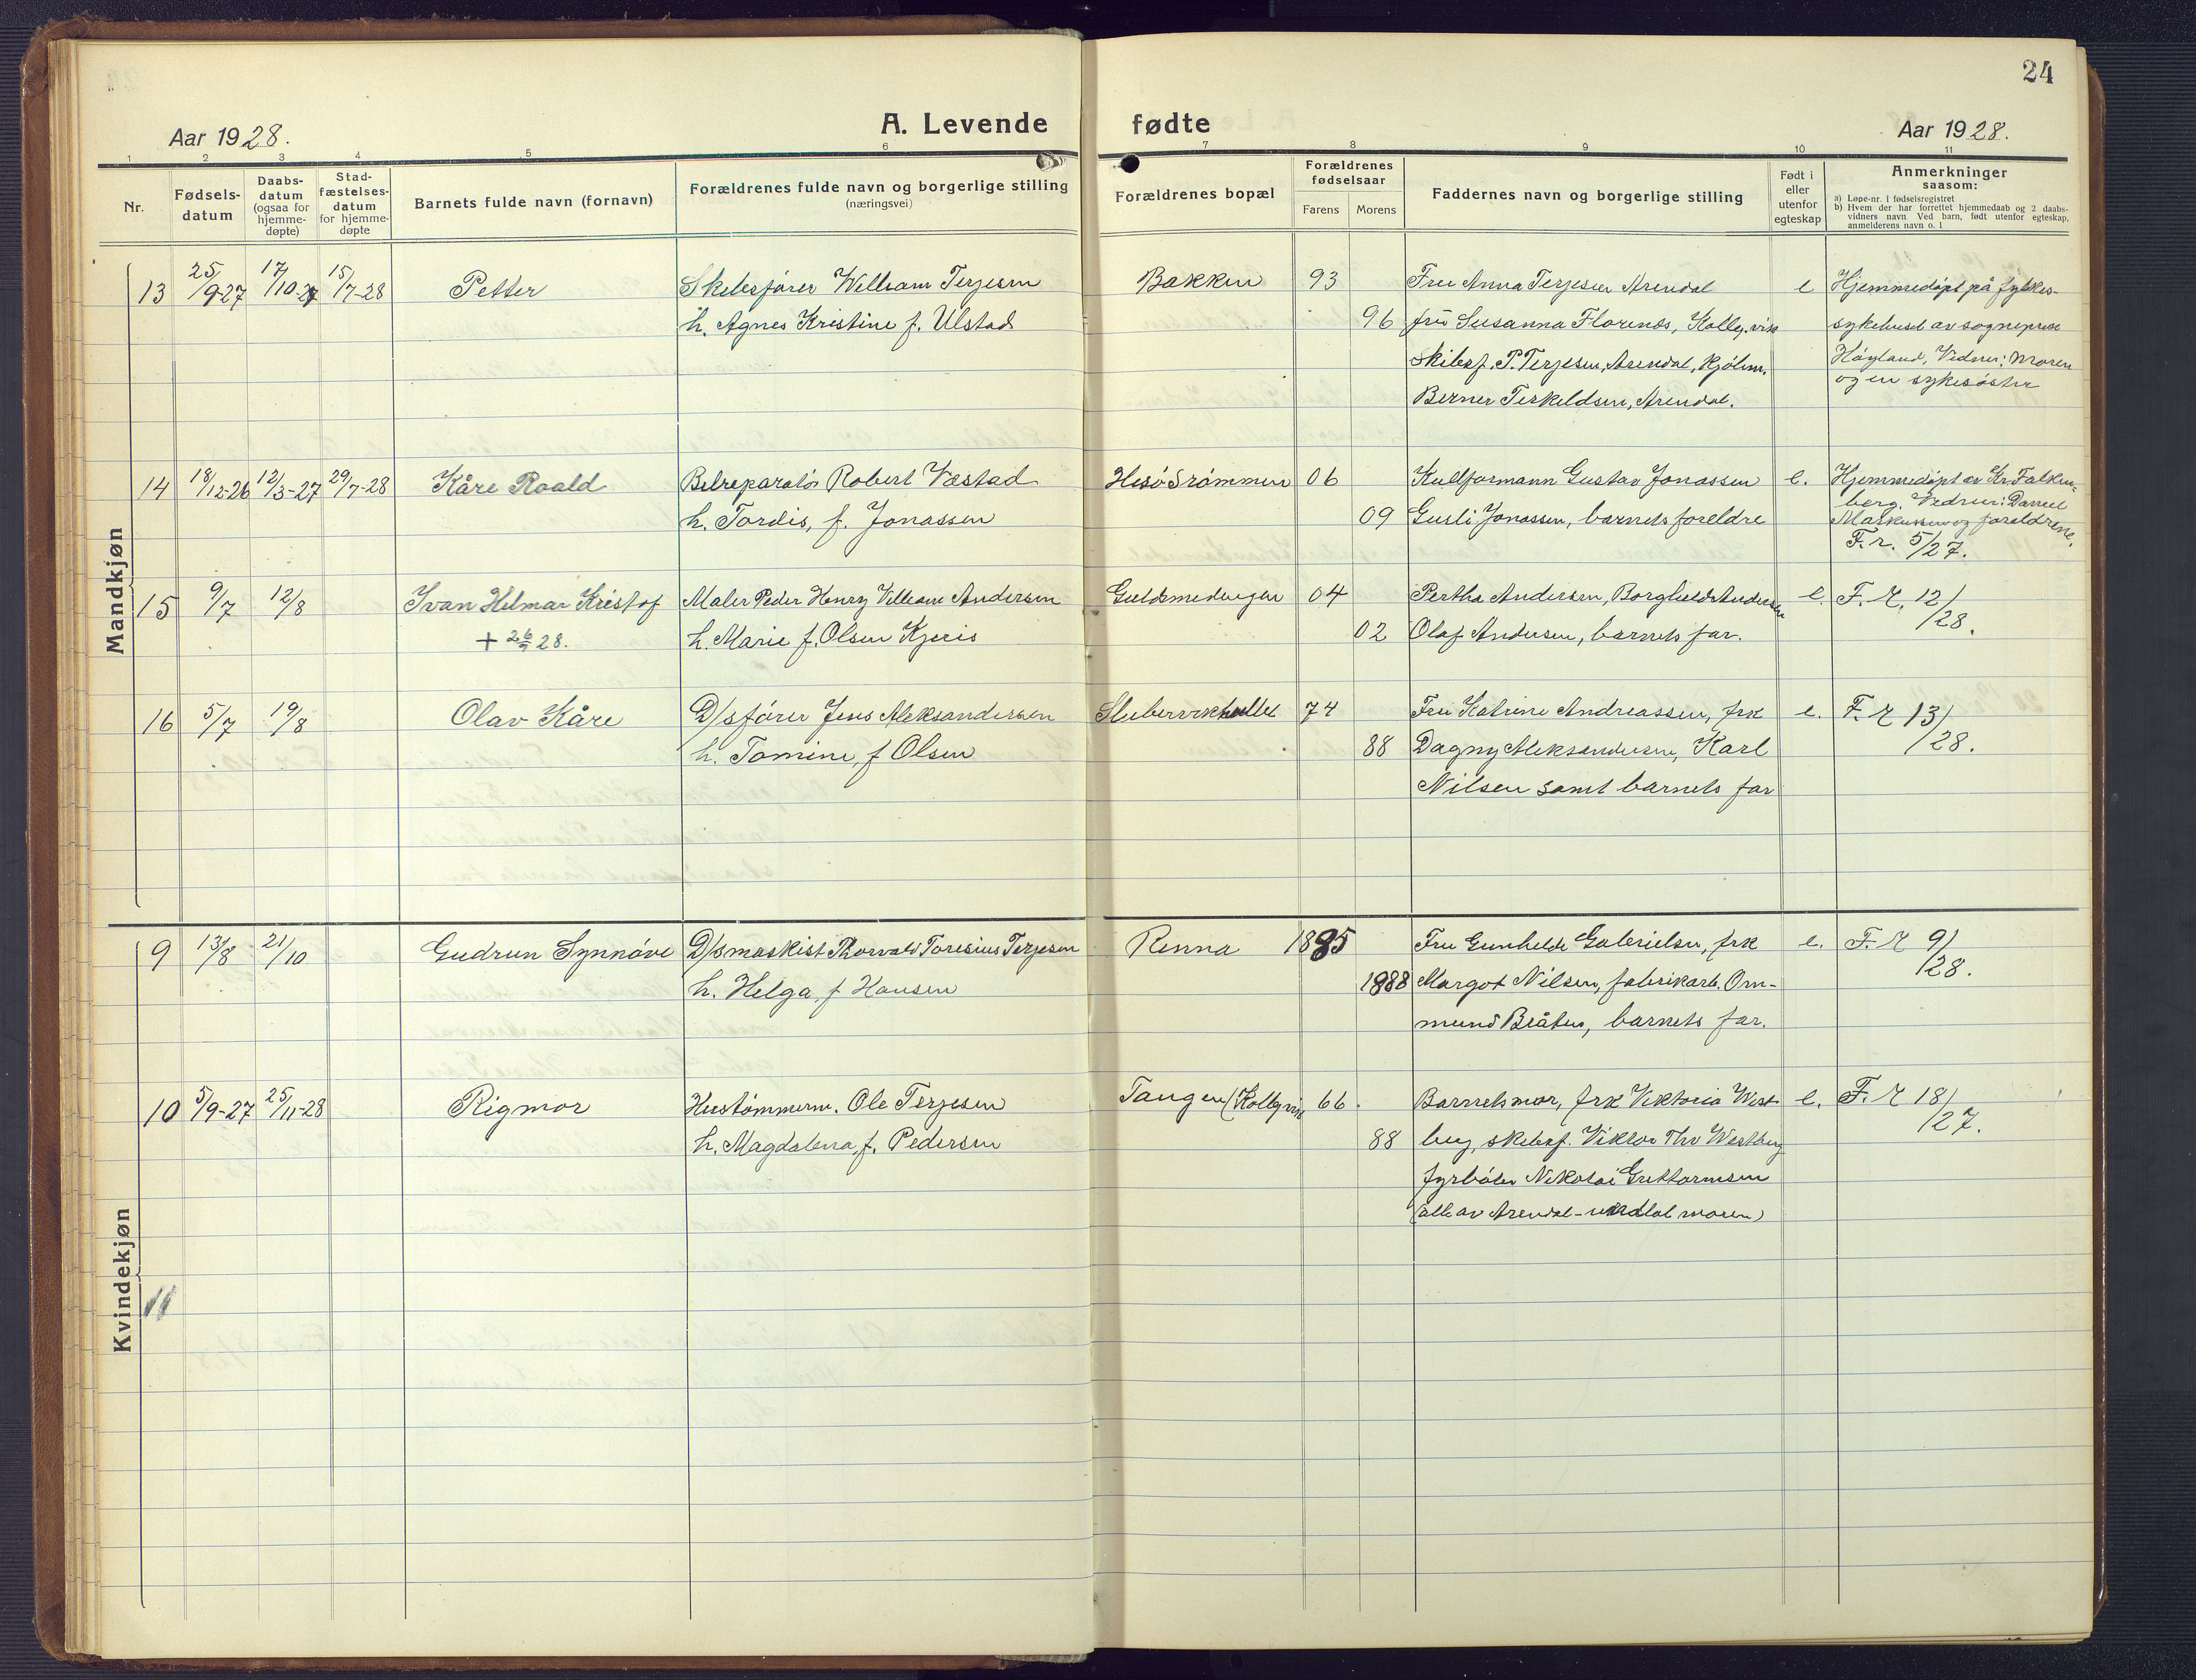 24
Aar 1928.
A. Levende fødte
Aar 1928.
1 2 3 4 5 6 7 8 9 10 11
Nr.
Fødsels-
datum
Daabs-
datum
(ogsaa for
hjemme-
døpte)
Stad-
fæstelses-
datum
for hjemme-
døpte
Barnets fulde navn (fornavn)
Forældrenes fulde navn og borgerlige stilling
(næringsvei)
Forældrenes bopæl
Forældrenes
fødselsaar
Farens Morens
Faddernes navn og borgerlige stilling
Født i
eller
utenfor
egteskap
Anmerkninger
saasom:
a) Løpe-nr. i fødselsregistret
b) Hvem der har forrettet hjemmedaab og 2 daabs-
vidners navn. Ved barn, født utenfor egteskap,
anmelderens navn o. l
Mandkjøn
13 25/9-27 17/10-27 15/7-28 Petter Skibsfører William Terjesen Bakken 93 Fru Anna Terjesen Arendal e Hjemmedøpt på fylkes-
h. Agnes Kristine f. Ulstad 96 frú Susanna Florenes, Kolbj.vik sykehuset av sogneprest
Skibsf. P. Terjesen, Arendal, Kjølm. Høyland, Vidner: Moren
Berner Terkeldsen, Arendal. og en sykesøster
14 18/12-26 12/3-27 29/7-28 Kåre Roald Bilreparatør Robert Vestad Hisö Strømmen 06 Kullformann Gustav Jonassen e. Hjemmedøpt av Kr. Falken-
berg. Vidner: Daniel
h. Tordis, f. Jonassen 09 Gusti Jonassen, barnets foreldre Markussen og foreldrene.
F. r. 5/27.
15 9/7 12/8 Ivan Hilmar Kristof Maler Peder Henry Villiam Andersen Guldsmedengen 04 Pertha Andersen, Borghild Andersen e. F. r. 12/28.
+ 26/9 28. h. Marie f. Olsen Kjeris 02 Olaf Andersen, barnets far.
16 5/7 19/8 Olav Kåre D/sfører Jens Aleksandersen 74 Fru Katrine Andreassen, frk e. F. r 13/28.
h. Tomine, f Olsen 88 Dagny Aleksandersen, Karl
Nilsen samt barnets far
Kvindekjøn
9 13/8 21/10 Gudrun Synnøve D/smaskist Thorvald Toresius Terjesen Renna 1885 Fru Gunhilde Gabrielsen, frk e. F. r 9/28.
h. Helga, f Hansen 1888 Margot Nilsen, fabrikarb. Orm-
mund Bråten, barnets far.
10 5/9-27 25/11-28 Rigmor Hustømmerm. Ole Terjesen Tangen (Kolbj.vik 66. Barnets mor, frk Viktoria West- e. F. r 18/27.
h. Magdalena, f. Pedersen 88 berg, skibsf. Viktor Thv Westberg
fyrbøter Nikolai Guttormsen
(alle av Arendal - undtat moren)
11